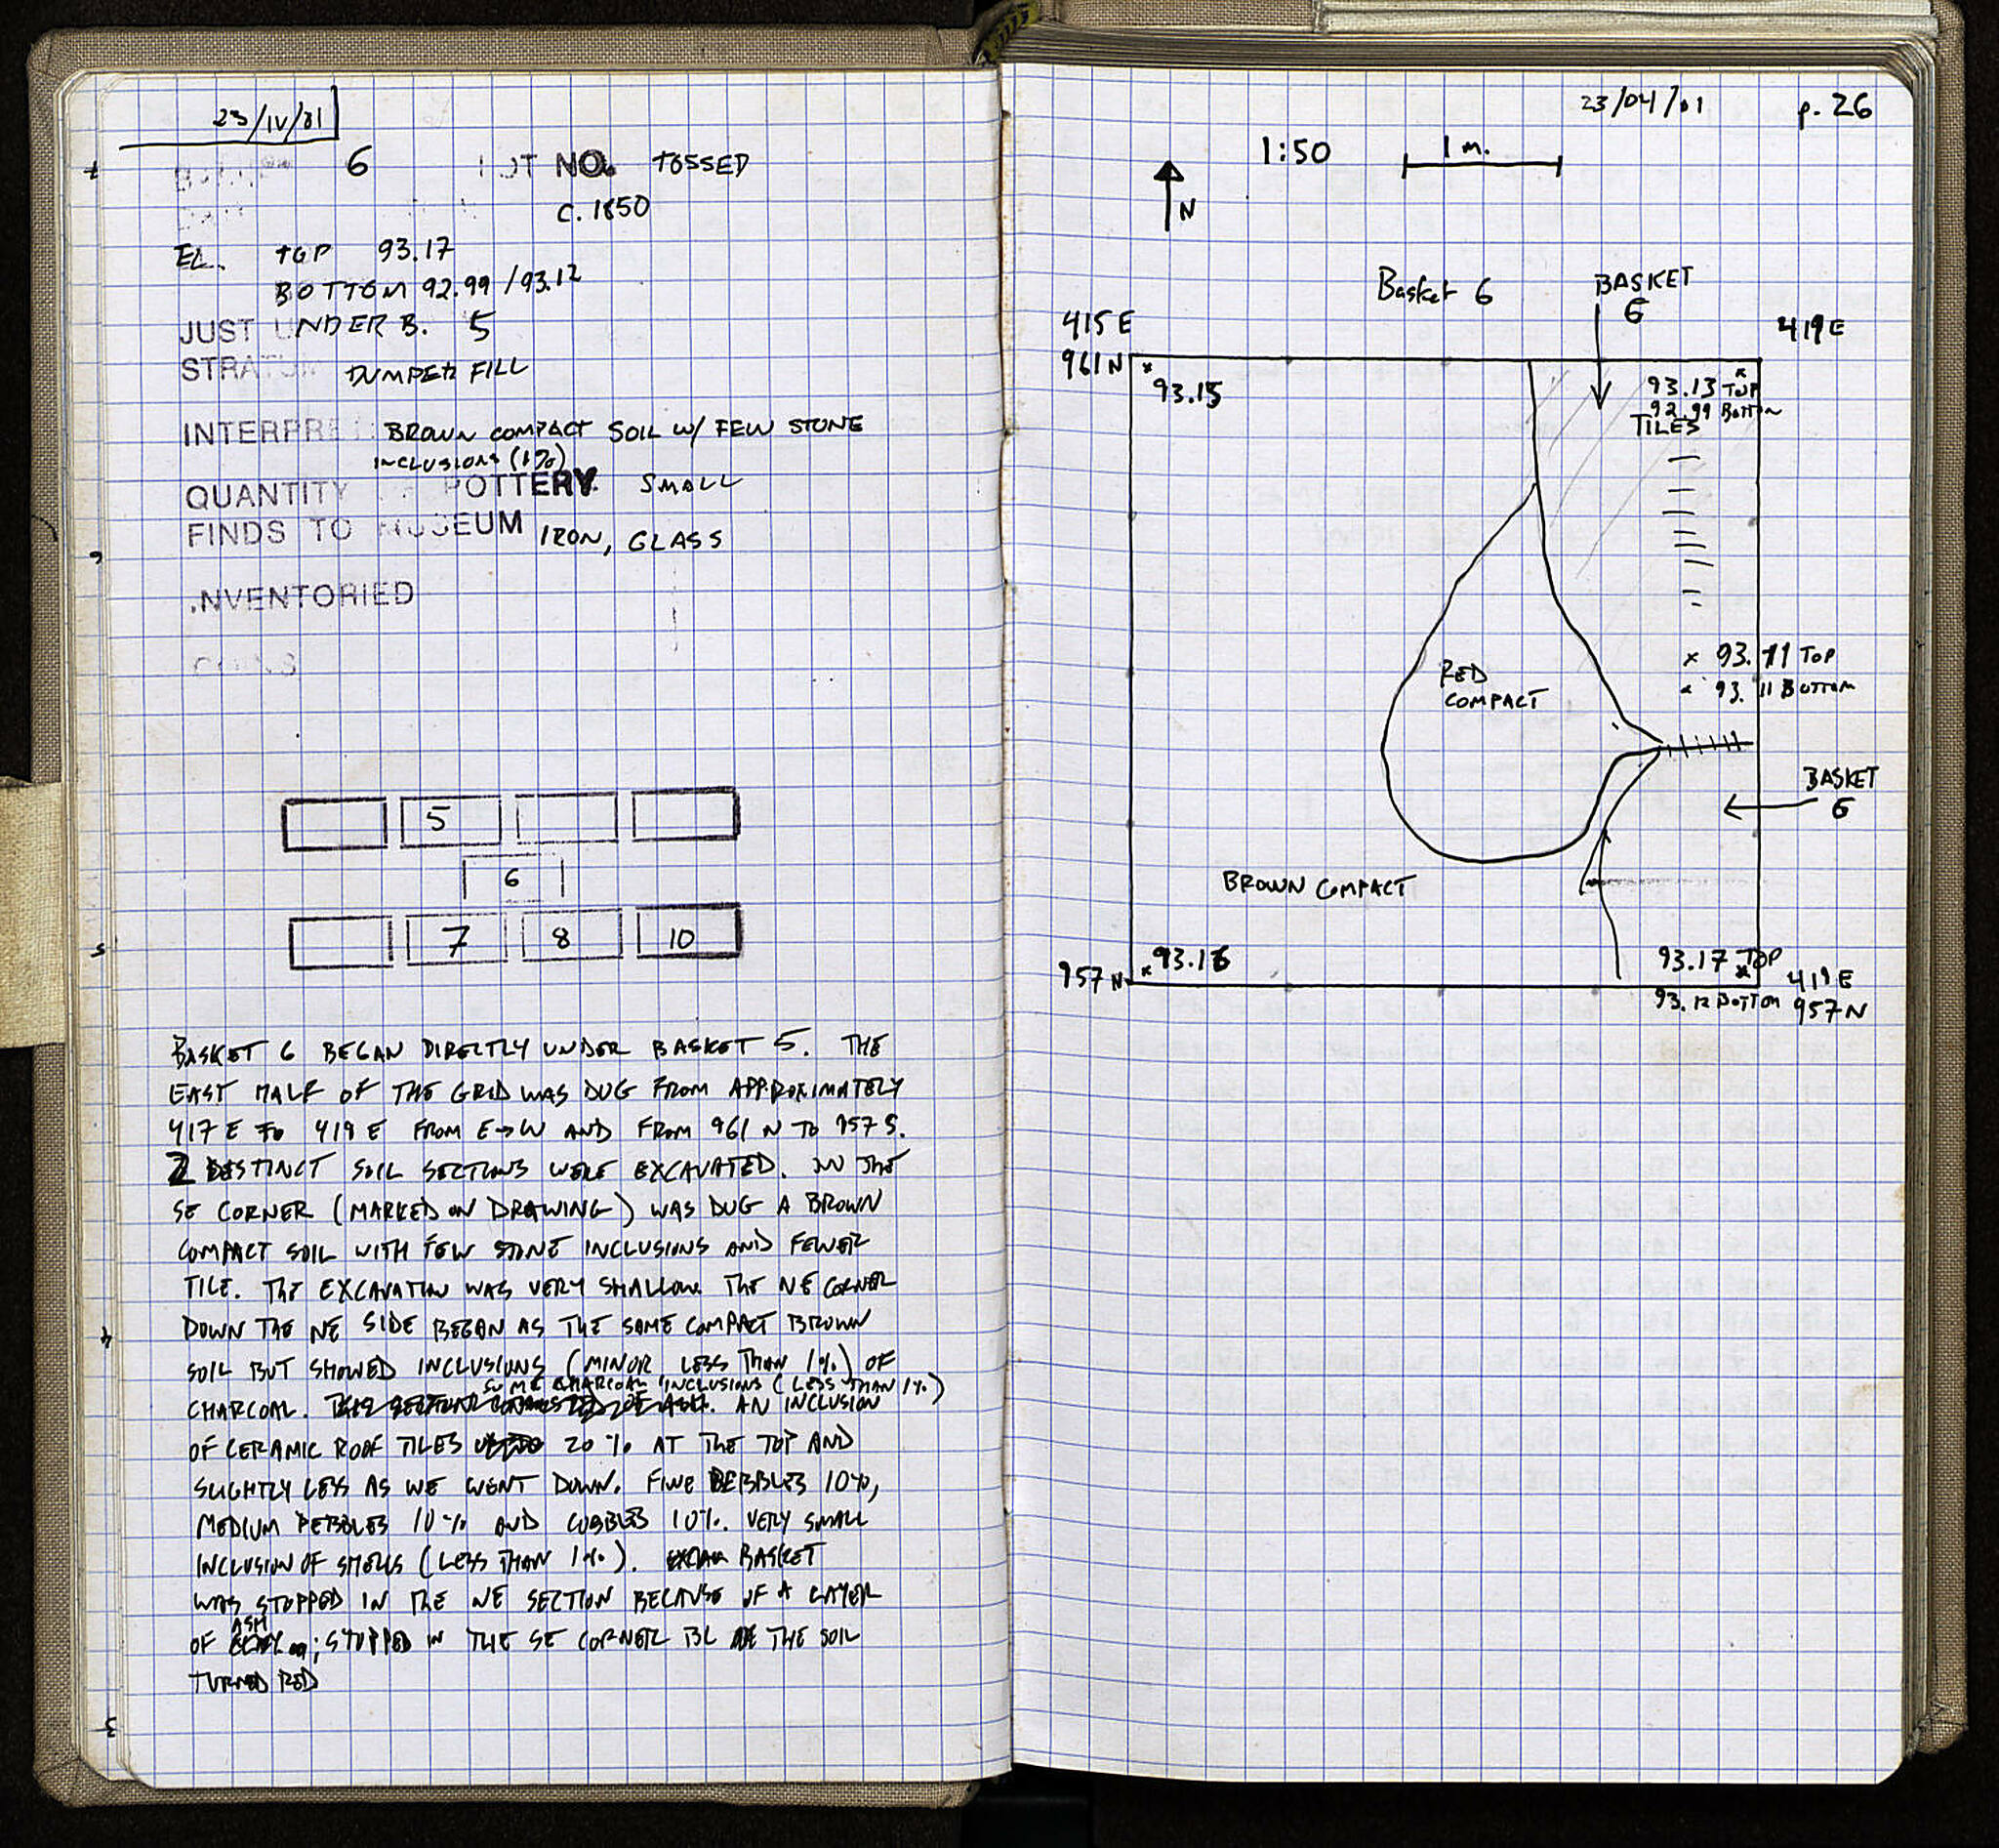 23/IV/01
6 LOT NO. TOSSED
C. 1850
EL. TOP 93.17
BOTTOM 92.99/93.12
JUST UNDER B. 5
STRATUM DUMPED FILL
INTERPRE BROWN COMPACT SOIL W/ FEW STONE
INCLUSIONS (1%)
QUANTITY OF POTTERY SMALL
FINDS TO MUSEUM IRON, GLASS
INVENTORIED
COINS
5
6
7 8 10
BASKET 6 BEGAN DIRECTLY UNDER BASKET 5. THE
EAST HALF OF THE GRID WAS DUG FROM APPROXIMATELY
417 E TO 419 E FROM E→W AND FROM 961 N TO 957 S.
2 DISTINCT SOIL SECTIONS WERE EXCAVATED. IN THE
SE CORNER (MARKED ON DRAWING) WAS DUG A BROWN
COMPACT SOIL WITH FEW STONE INCLUSIONS AND FEWER
TILE. THE EXCAVATION WAS VERY SHALLOW. THE NE CORNER
DOWN THE NE SIDE BEGAN AS THE SAME COMPACT BROWN
SOIL BUT SHOWED INCLUSIONS (MINOR LESS THAN 1%) OF
SOME CHARCOAL INCLUSIONS (LESS THAN 1%)
CHARCOAL. AN INCLUSION
OF CERAMIC ROOF TILES 20% AT THE TOP AND
SLIGHTLY LESS AS WE WENT DOWN. FINE PEBBLES 10%,
MEDIUM PEBBLES 10% AND COBBLES 10%. VERY SMALL
INCLUSION OF SHELLS (LESS THAN 1%). BASKET
WAS STOPPED IN THE NE SECTION BECAUSE OF A LAYER
ASH
OF ; STOPPED IN THE SE CORNER BC THE SOIL
TURNED RED
23/04/01 p. 26
1:50 1 m.
N
Basket 6 BASKET
6
415 E 419 E
961 N
93.15 93.13 TOP
92.99 BOTTOM
TILES
93.11 TOP
93.11 BOTTOM
RED
COMPACT
BASKET
6
BROWN COMPACT
93.16 93.17 TOP
957 N 419 E
93.12 BOTTOM 957 N